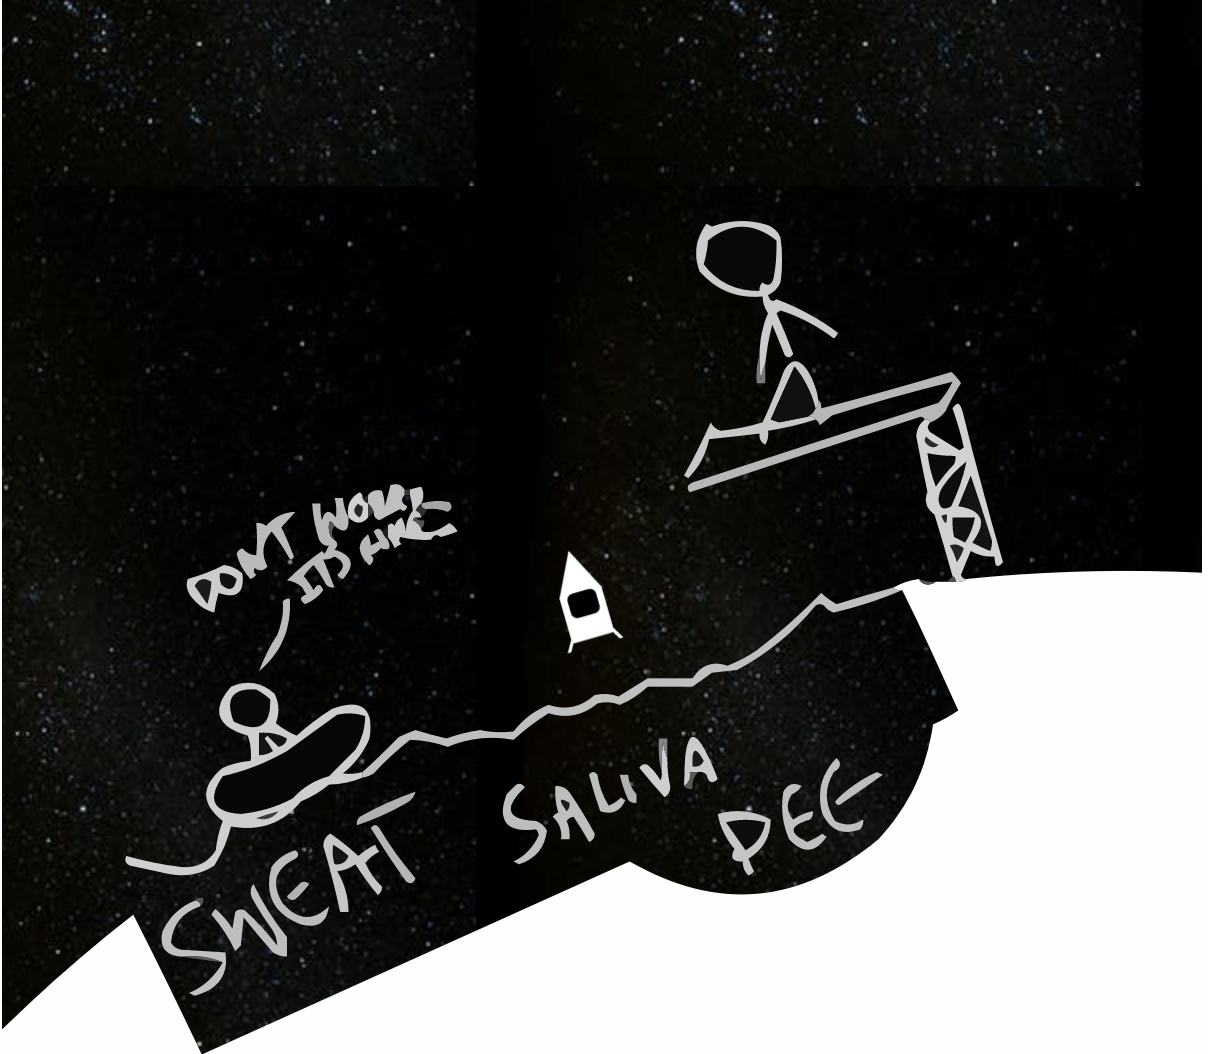 DONT WORRY
ITS
SWEAT
SALIVA
PEE